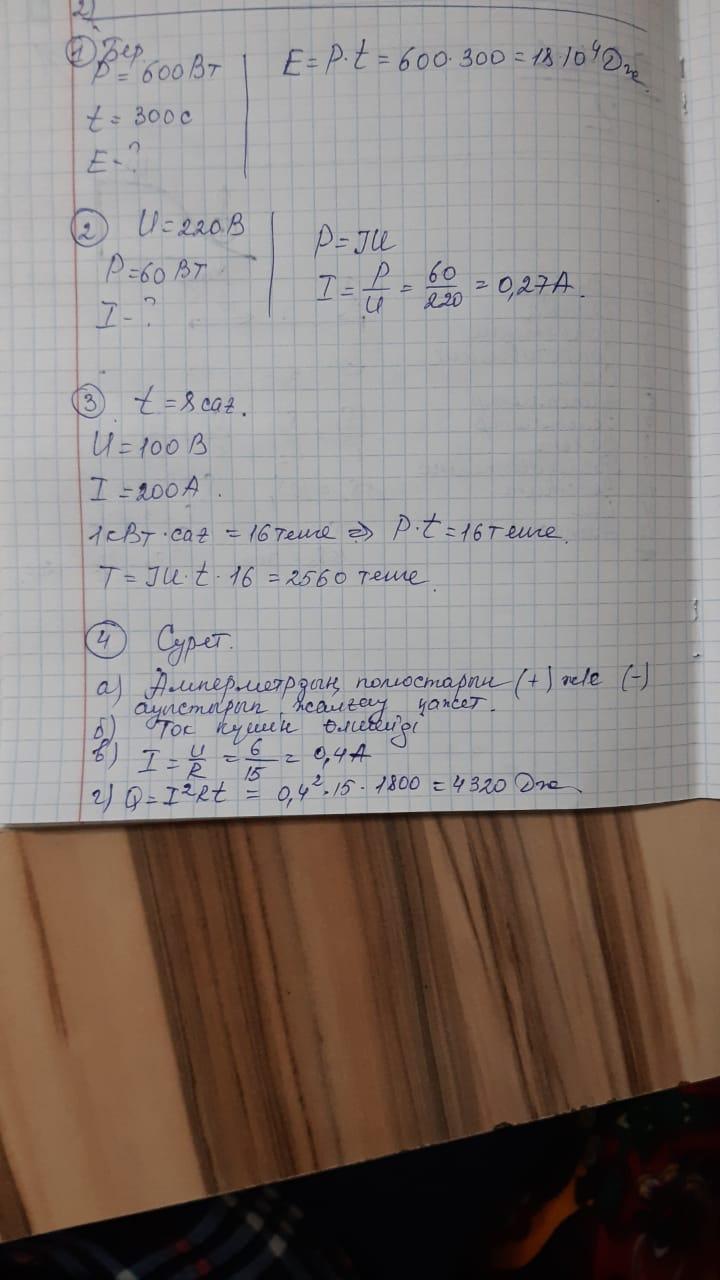 2)
① Бер
P = 600Вт
E = P·t = 600·300 = 18·10⁴ Дж.
t = 300с
E - ?
② U = 220В
P = 60 Вт
I - ?
P = IU
I = P/U = 60/220 = 0,27А.
③ t = 8 сағ.
U = 100 В
I = 200А.
1кВт·сағ = 16 теңге => P·t = 16 теңге.
T = IU·t·16 = 2560 теңге.
④ Сурет.
а) Амперметрдың полюстарын (+) ж/е (-)
ауыстырып жалғау қажет.
б) Ток күшін өлшейді
в) I = U/R = 6/15 = 0,4А
г) Q = I²Rt = 0,4²·15·1800 = 4320 Дж